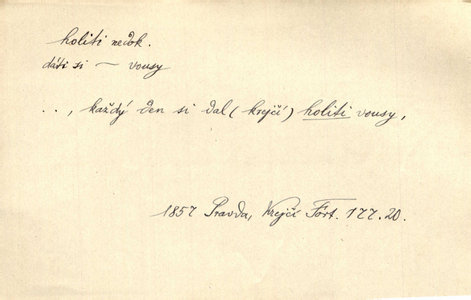 holiti nedok.
dáti si ~ vousy
..., každý den si dal (krejčí) holiti vousy,
1857 Pravda, Krejčí Fört. 177.20.